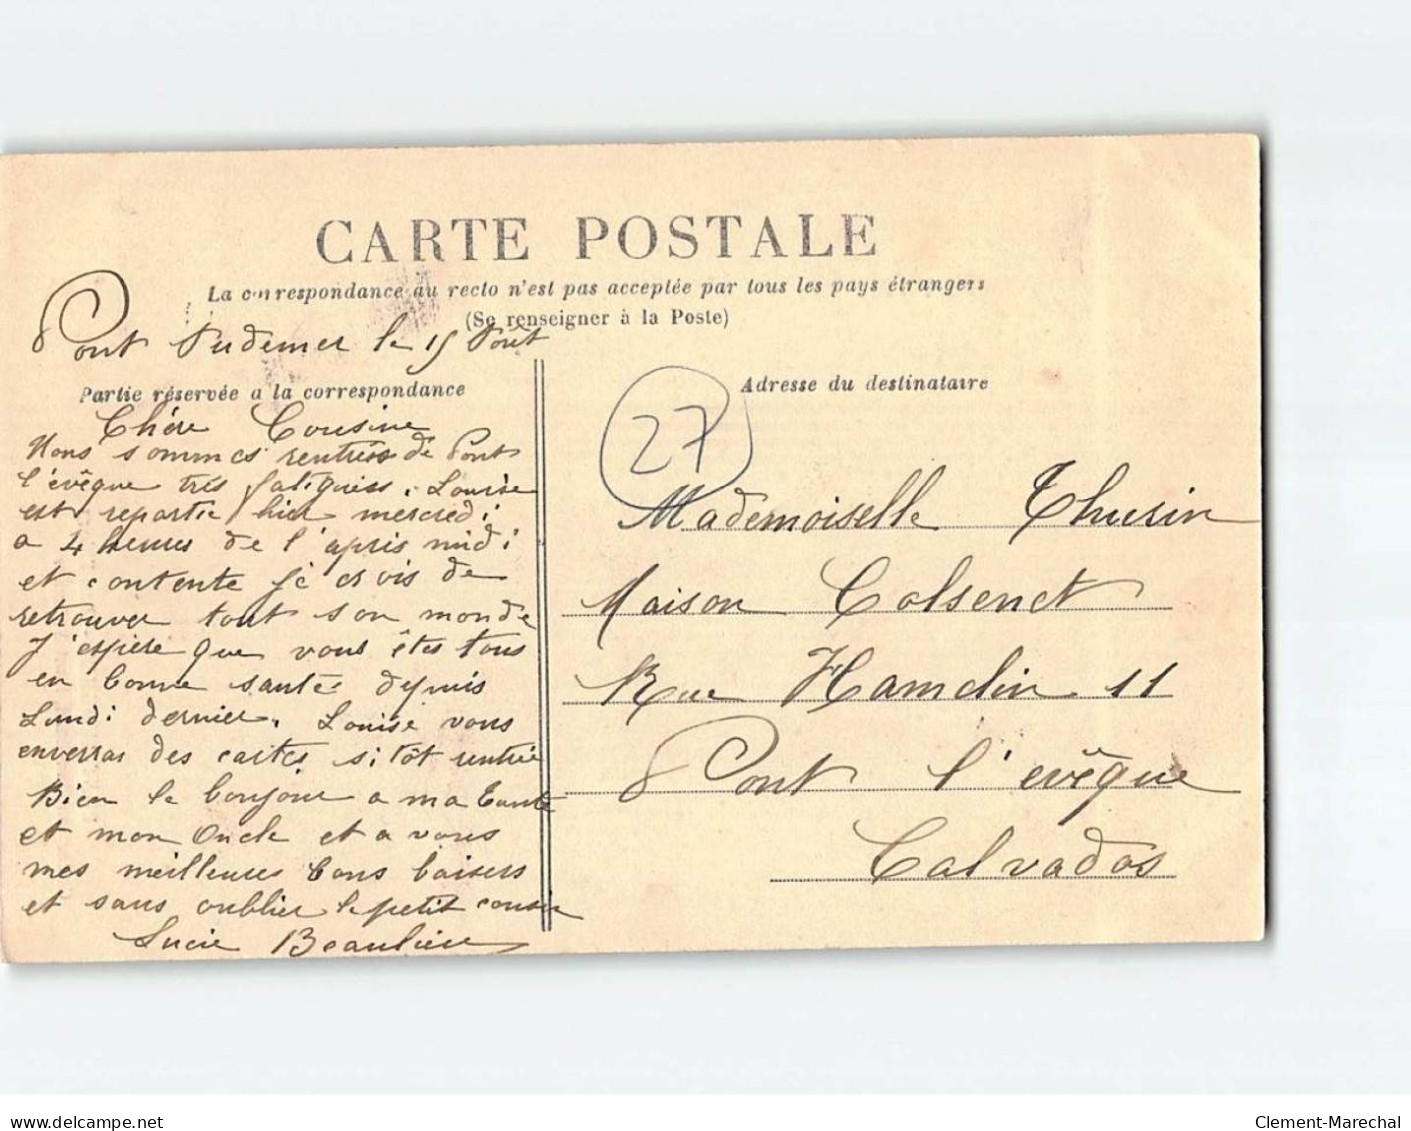 CARTE POSTALE
La correspondance au recto n'est pas acceptée par tous les pays étrangers
(Se renseigner à la Poste)
Pont Audemer le 15 Août
Partie réservée a la correspondance
Chére Cousine
Nous sommes rentrés de Pont
l'évêque trés fatigués. Louise
est repartie hier mercredi
a 4 heures de l'apris midi
et contente je crois de
retrouver tout son monde
J'espère que vous êtes tous
en bonne santé depuis
Lundi dernier. Louise vous
enverras des cartes sitôt rentrée
Bien le bonjour a ma tante
et mon Oncle et a vous
mes meilleures bons baisers
et sans oublier le petit cousin
Lucie Beaulieu
Adresse du destinataire
27
Mademoiselle Thurin
Maison Colsenet
Rue Hamelin 11
Pont l'evêque
Calvados
delcampe.net
Clement-Marechal